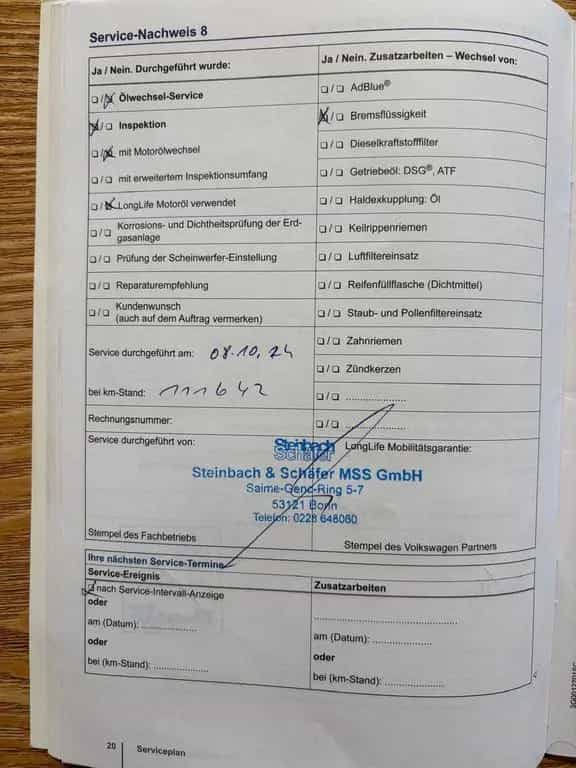 Service-Nachweis 8
Ja / Nein. Durchgeführt wurde:
Ja / Nein. Zusatzarbeiten – Wechsel von:
❏ / ❏ Ölwechsel-Service
❏ / ❏ AdBlue®
❏ / ❏ Inspektion
❏ / ❏ Bremsflüssigkeit
❏ / ❏ mit Motorölwechsel
❏ / ❏ Dieselkraftstofffilter
❏ / ❏ mit erweitertem Inspektionsumfang
❏ / ❏ Getriebeöl: DSG®, ATF
❏ / ❏ LongLife Motoröl verwendet
❏ / ❏ Haldexkupplung: Öl
❏ / ❏ Korrosions- und Dichtheitsprüfung der Erd-
gasanlage
❏ / ❏ Keilrippenriemen
❏ / ❏ Prüfung der Scheinwerfer-Einstellung
❏ / ❏ Luftfiltereinsatz
❏ / ❏ Reparaturempfehlung
❏ / ❏ Reifenfüllflasche (Dichtmittel)
❏ / ❏ Kundenwunsch
(auch auf dem Auftrag vermerken)
❏ / ❏ Staub- und Pollenfiltereinsatz
❏ / ❏ Zahnriemen
Service durchgeführt am: 08.10.24
❏ / ❏ Zündkerzen
bei km-Stand: 111642
❏ / ❏ ....................
Rechnungsnummer:
❏ / ❏ ....................
Service durchgeführt von:
LongLife Mobilitätsgarantie:
Steinbach
Schäfer
Steinbach & Schäfer MSS GmbH
53121 Bonn
Telefon: 0228 648060
Stempel des Fachbetriebs
Stempel des Volkswagen Partners
Ihre nächsten Service-Termine
Service-Ereignis
Zusatzarbeiten
❏ nach Service-Intervall-Anzeige
oder
am (Datum): ..................
am (Datum): ..................
oder
oder
bei (km-Stand): ..................
bei (km-Stand): ..................
20
Serviceplan